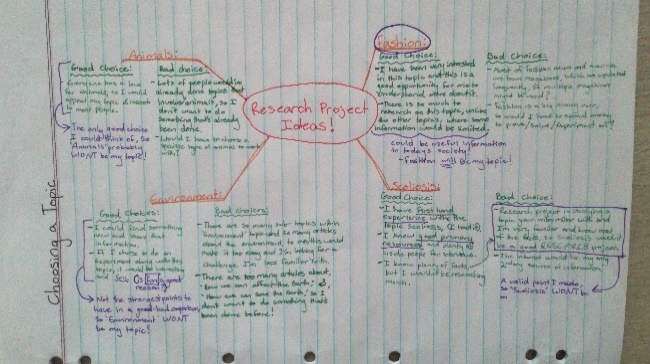 Choosing a Topic
Research Project
Ideas!
Animals:
Good Choice:
Everyone has a love
for animals, so I would
appeal my topic to
most people.
The only good choice
I could think of, so
'Animals' probably
WONT be my topic!
Bad choice:
- Lots of people would've
already done topics that
involve animals, so I
don't want to do
something that's already
been done.
- Would I have to choose a
specific type of animal to work
with?
Fashion:
Good Choice:
- I have been very interested
in this topic and this is a
good opportunity for me to
understand, and benefit.
- There is so much to
research on this topic, unlike
the other topics, where some
information would be limited.
Could be useful information
in todays society!
- Fashion will be my topic!
Bad Choice:
- Most of fashion news and
from magazines, which are updated
frequently, so multiple magazines
might be
- Fashion is a big money user,
so would I need to spend money
Environment:
Good Choices:
- I could find something
I didn't know
information.
- If I chose to do an
experiment along with this
topic, it could be interesting
and fun
good
reason
Not the strongest points to
have in a good-bad comparison,
so 'Environment' WONT
be my topic!
Bad choices:
- There are so many sub-topics within
'environment' and so many articles
about the environment, to me this would
make it too easy and I'm looking for a
challenge I'm less familiar with.
- There are too many articles about,
'how we can affect the Earth', &
'How we can save the Earth', so I
don't want to do something that's
been done before!
Scoliosis:
Good Choice:
- I have first hand
experience with the
topic Scoliosis, (I had it)
- I know good primary
resources and plenty of
- I know plenty of facts
but I would be researching
more.
Bad Choice:
- Research project is studying a
topic your unfamiliar with and
I'm very familiar and know most
of the facts, so scoliosis wouldn't
be a good RESEARCH project
- I'm
many sources of information?
A valid point I made,
so 'Scoliosis' WONT be